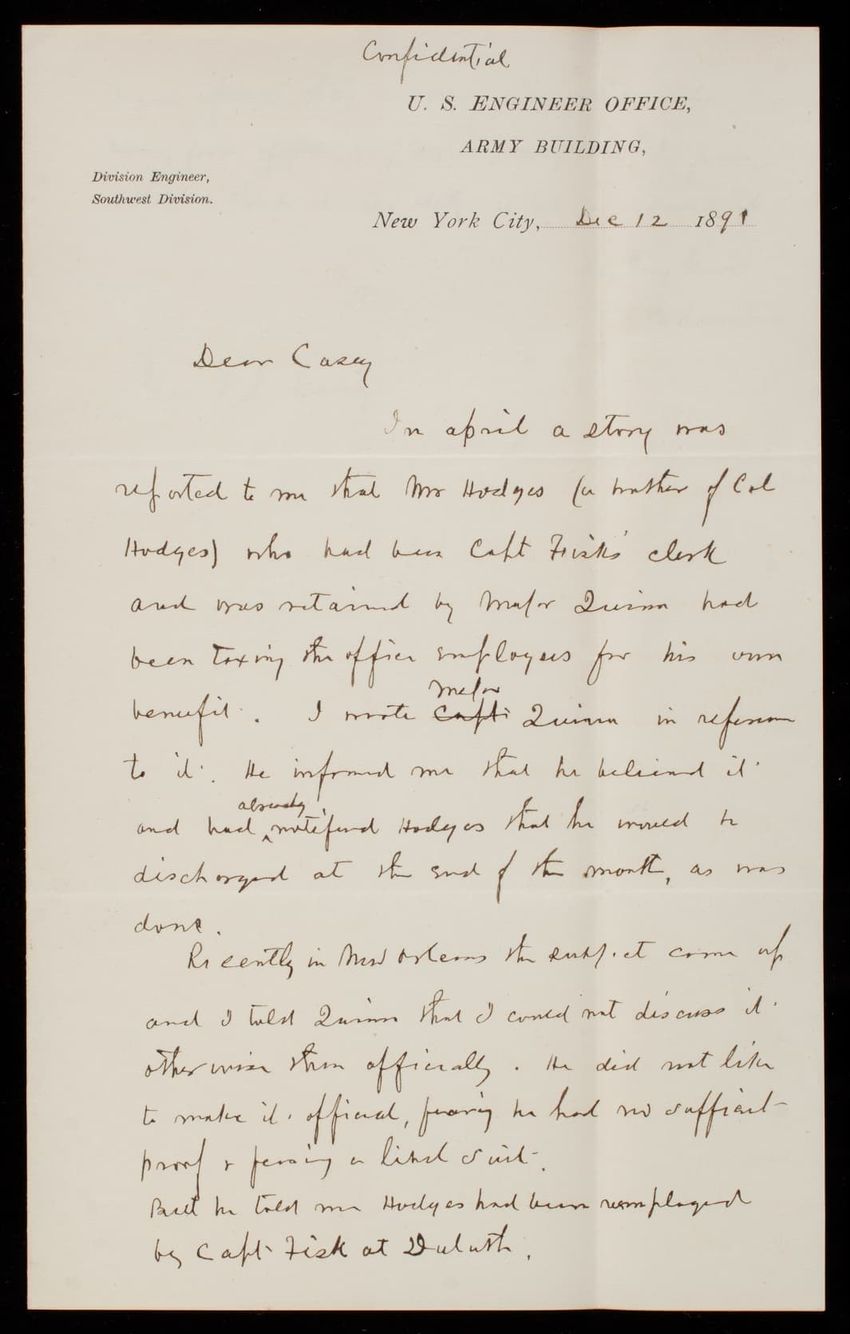 Confidential
U. S. ENGINEER OFFICE,
ARMY BUILDING,
Division Engineer,
Southwest Division.
New York City, Dec 12 1891
Dear Casey
In april a story was
reported to me that Mr Hodges (a brother of Col
Hodges) who had been Capt Fisk's clerk
and was retained by Major Quinn had
been taxing the office employees for his own
benefit. I wrote Capt Major Quinn in reference
to it. He informed me that he believed it
and had already notified Hodges that he would be
discharged at the end of the month, as was
done.
Recently in New Orleans the subject came up
and I told Quinn that I could not discuss it
otherwise than officially. He did not like
to make it official, fearing he had no sufficient
proof & fearing a libel suit.
But he told me Hodges had been reemployed
by Capt Fisk at Duluth.